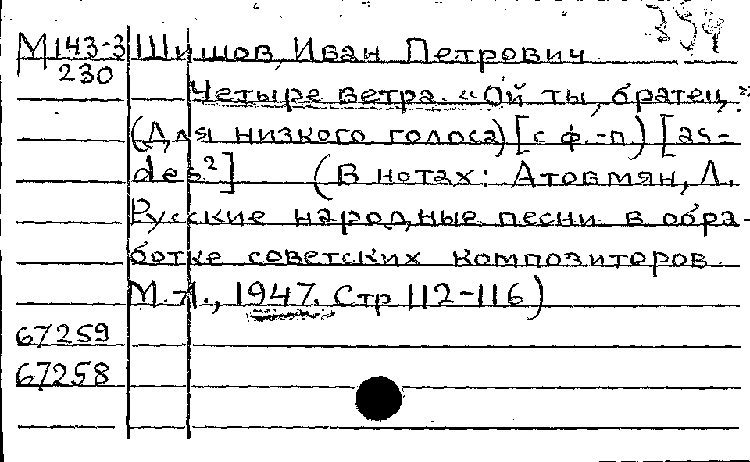 М143-3 Шишов, Иван Петрович
230
Четыре ветра. «Ой ты, братец»
(Для низкого голоса) [с ф.-п) [as-
des²] (В нотах: Атовмян, Л.
Русские народные песни в обра-
ботке советских композиторов.
М.-Л., 1947. Стр 112-116)
67259
67258